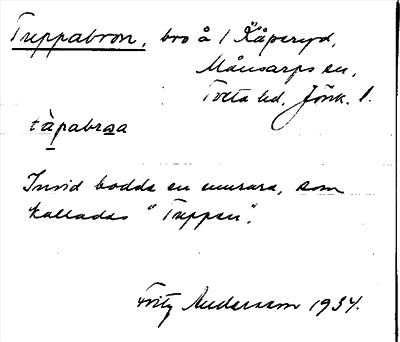 Tuppabron, bro å 1 Kåperyd,
Månsarps sn,
Tveta hd, Jönk. l.
Invid bodde en murare, som
kallades "Tuppen".
Fritz Andersson 1934.